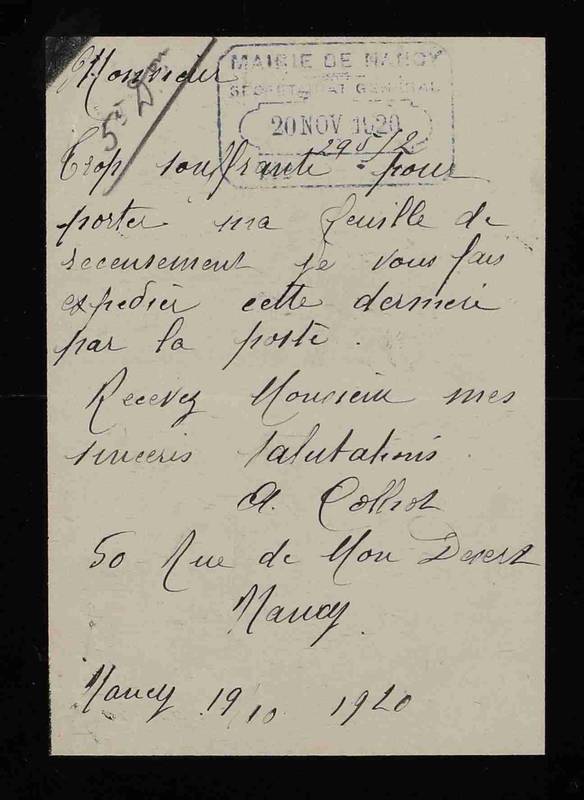 Monsieur
MAIRIE DE NANCY
SECRETARIAT GENERAL
20 NOV 1920
29572
Trop souffrante pour
porter ma feuille de
recensement je vous fais
expedier cette derniere
par la poste.
Recevez Monsieur mes
sinceres salutations
A. Collot
50 Rue de Mon Desert
Nancy.
Nancy 19/10 1920